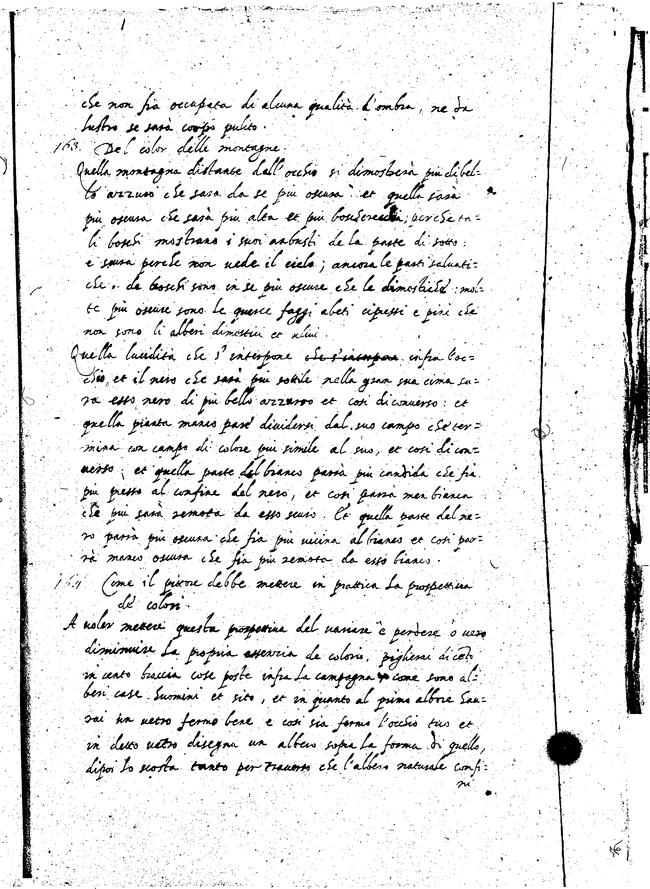 che non sia occupata di alcuna qualità d'ombra, ne da
lustro se sarà corpo pulito.
163. Del color delle montagne.
Quella montagna distante dall'occhio si dimosterà più di bel=
lo azzuro che sara da se più oscura: et quella sarà
più oscura che sarà più alta et più boschereccia; perche ta=
li boschi mostrano i suoi arbusti de la parte di sotto:
e scura perche non vede il cielo; ancora le parti salvati=
che. de boschi sono in se più oscure che le dimostiche: mol=
te più oscure sono le querce faggi abeti cipressi e pini che
non sono li alberi dimostici et ulivi.
Quella lucidità che s'interpone che s'interpone infra l'oc=
chio et il nero che sarà più sottile nella gran sua cima fa=
ra esso nero di più bello azzurro et cosi di converso: et
quella pianta manco pare dividersi dal suo campo che ter=
mina con campo di colore più simile al suo, et cosi di con=
verso; et quella parte del bianco parrà più candida che fia
più presso al confine del nero, et cosi parra men bianca
che più sarà remota da esso scuro. Et quella parte del ne=
ro parrà più oscura che fia più vicina al bianco et cosi par=
rà manco oscura che fia più remota da esso bianco.
164. Come il pittore debbe mettere in prattica la prospettiva
de colori.
A voler mettere questa prospettiva del variare e perdere o vero
diminuire la propria essenzia de colori, piglierai di cēto
in cento braccia cose poste infra la campagna come sono al=
beri case huomini et sito, et in quanto al primo albore hau=
rai un vetro fermo bene e cosi sia fermo l'occhio tuo et
in detto vetro disegna un albero sopra la forma di quello,
dipoi lo scosta tanto per traverso che l'albero naturale confi=
ni